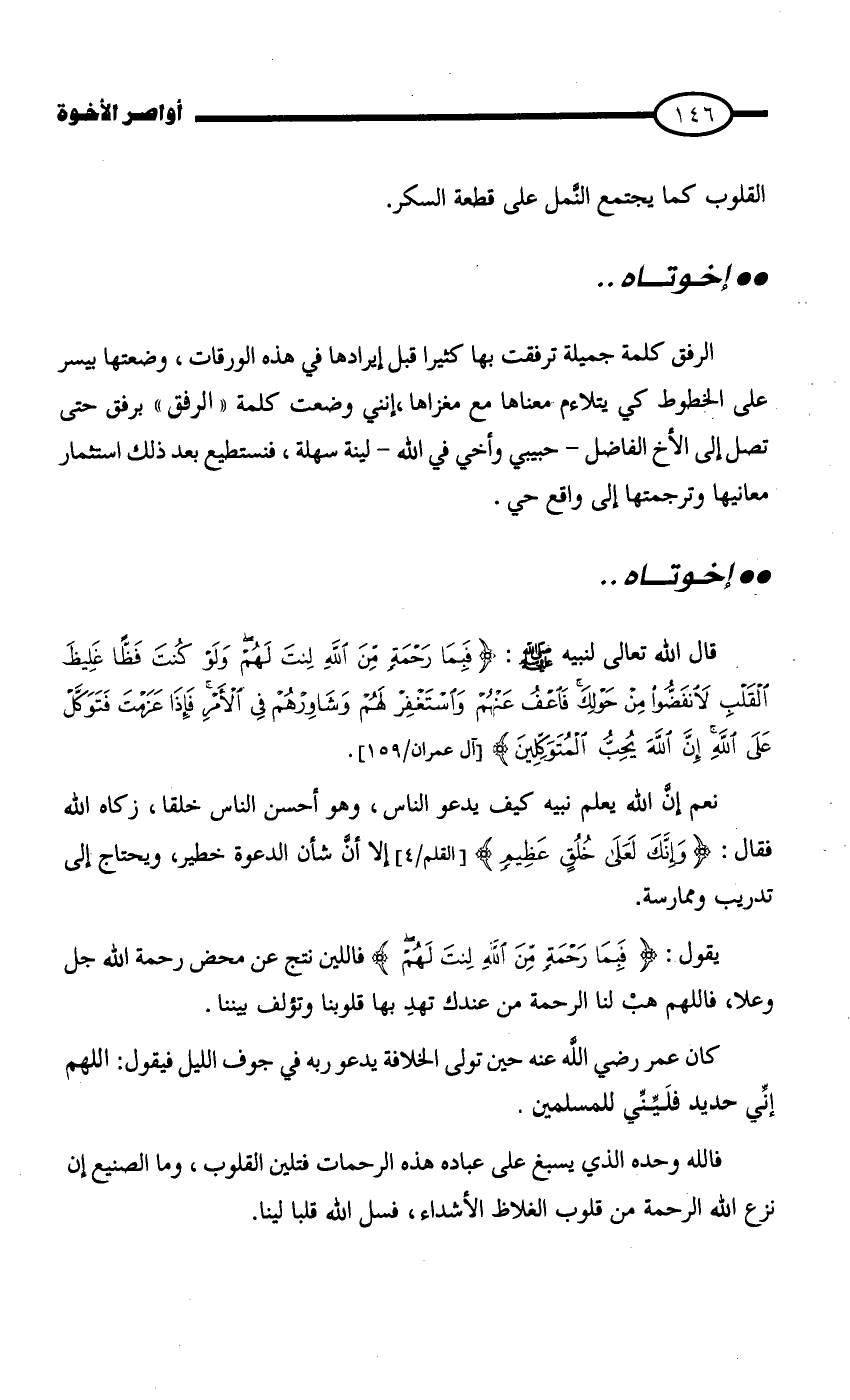 ١٤٦ أواصر الأخوة
القلوب كما يجتمع النَّمل على قطعة السكر.
●● إخـوتـــاه ..
الرفق كلمة جميلة ترفقت بها كثيرا قبل إيرادها في هذه الورقات ، وضعتها بيسر
على الخطوط كي يتلاءم معناها مع مغزاها ،إنني وضعت كلمة « الرفق » برفق حتى
تصل إلى الأخ الفاضل - حبيبي وأخي في الله - لينة سهلة ، فنستطيع بعد ذلك استثمار
معانيها وترجمتها إلى واقع حي .
●● إخـوتـــاه ..
قال الله تعالى لنبيه ﷺ : ﴿ فَبِمَا رَحْمَةٍ مِّنَ ٱللَّهِ لِنتَ لَهُمْ ۖ وَلَوْ كُنتَ فَظًّا غَلِيظَ
ٱلْقَلْبِ لَٱنفَضُّوا۟ مِنْ حَوْلِكَ ۖ فَٱعْفُ عَنْهُمْ وَٱسْتَغْفِرْ لَهُمْ وَشَاوِرْهُمْ فِى ٱلْأَمْرِ ۖ فَإِذَا عَزَمْتَ فَتَوَكَّلْ
عَلَى ٱللَّهِ ۚ إِنَّ ٱللَّهَ يُحِبُّ ٱلْمُتَوَكِّلِينَ ﴾ [آل عمران/١٥٩] .
نعم إنَّ الله يعلم نبيه كيف يدعو الناس ، وهو أحسن الناس خلقا ، زكاه الله
فقال : ﴿ وَإِنَّكَ لَعَلَىٰ خُلُقٍ عَظِيمٍ ﴾ [القلم/٤] إلا أنَّ شأن الدعوة خطير، ويحتاج إلى
تدريب وممارسة.
يقول : ﴿ فَبِمَا رَحْمَةٍ مِّنَ ٱللَّهِ لِنتَ لَهُمْ ۖ ﴾ فاللين نتج عن محض رحمة الله جل
وعلا، فاللهم هبْ لنا الرحمة من عندك تهدِ بها قلوبنا وتؤلف بيننا .
كان عمر رضي اللَّه عنه حين تولى الخلافة يدعو ربه في جوف الليل فيقول: اللهم
إنِّي حديد فلَيِّنِّي للمسلمين .
فالله وحده الذي يسبغ على عباده هذه الرحمات فتلين القلوب ، وما الصنيع إن
نزع الله الرحمة من قلوب الغلاظ الأشداء ، فسل الله قلبا لينا.